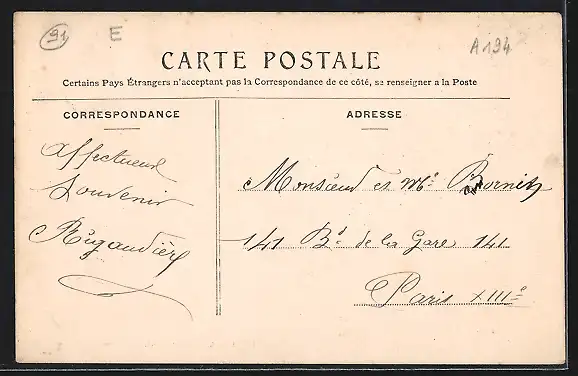 91 E A194
CARTE POSTALE
Certains Pays Étrangers n'acceptant pas la Correspondance de ce côté, se renseigner a la Poste
CORRESPONDANCE
Affectueux
Souvenir
Rigaudière
ADRESSE
Monsieur et Me
141 Bd de la Gare 141
Paris XIIIe